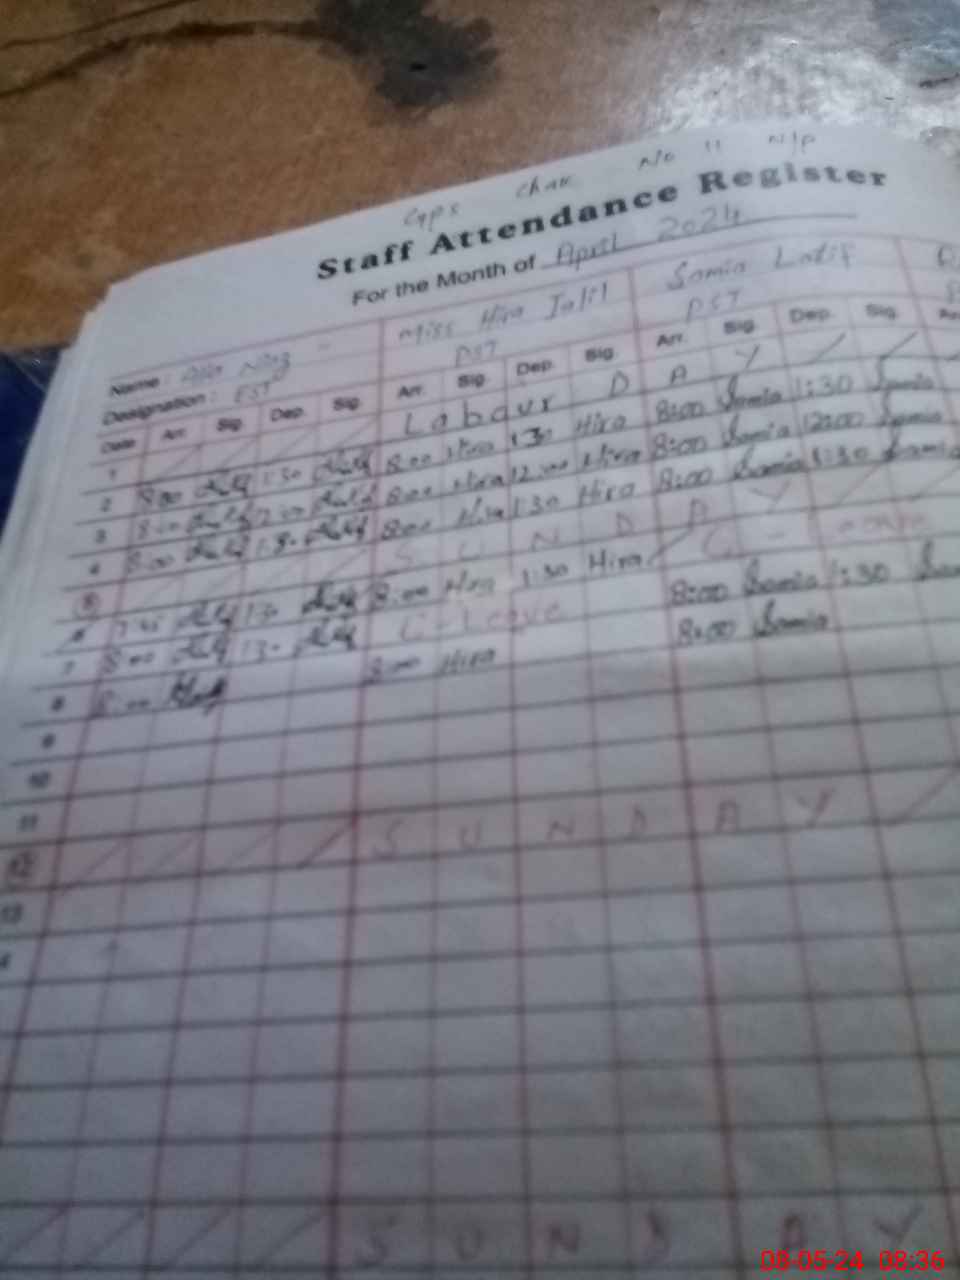 GPS Chak No 11 N/P
Staff Attendance Register
For the Month of April 2024
Name : Niaz Miss Hira Jalil Samia Latif
Designation : EST PST PST
Date Arr. Sig. Dep. Sig. Arr. Sig. Dep. Sig. Arr. Sig. Dep. Sig.
1 Labour DAY
2 8:00 1:30 8:00 Hira 1:30 Hira 8:00 Samia 1:30 Samia
3 8:00 12:00 8:00 Hira 12:00 Hira 8:00 Samia 12:00 Samia
4 8:00 1:30 8:00 Hira 1:30 Hira 8:00 Samia 1:30 Samia
5 SUNDAY
6 1:30 8:00 Hira 1:30 Hira C-Leave
7 8:00 1:30 C-Leave 8:00 Samia 1:30
8 8:00 8:00 Hira 8:00 Samia
9
10
11
12 SUNDAY
13
SUNDAY
08-05-24 08:36